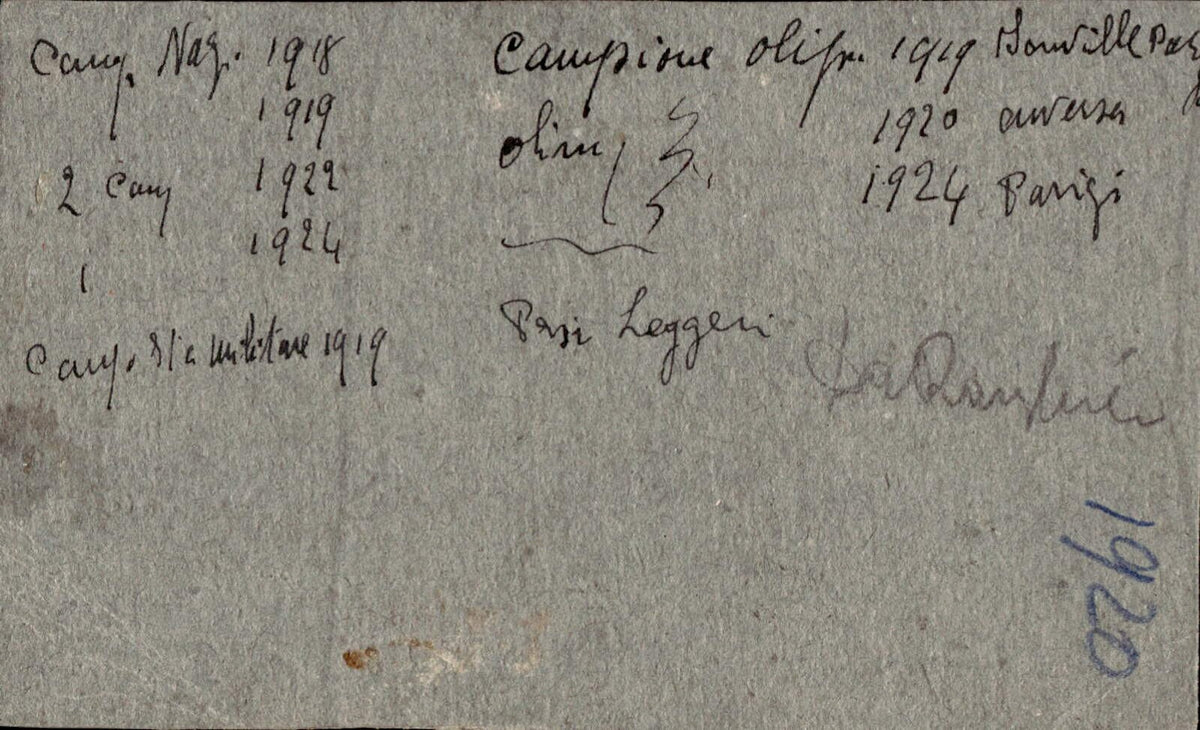 Camp. Naz. 1918
1919
2 Camp 1922
1924
1
Camp. militare 1919
Campione olim. 1919 Joinville
olim 1920 anversa
1924 Parigi
Pesi Leggeri
1920